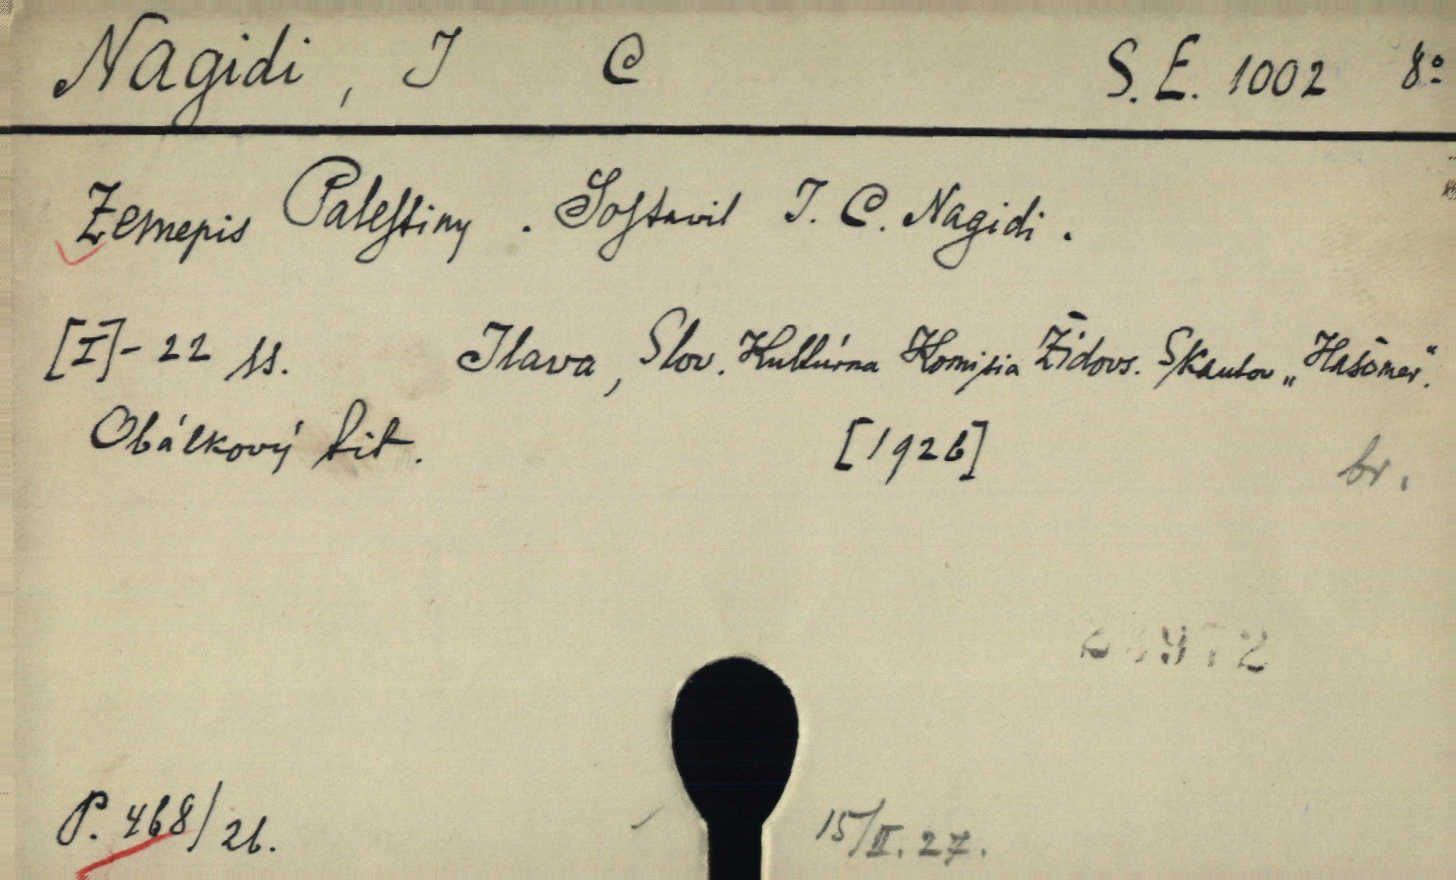 Nagidi, J C S. E. 1002 8º
Zemepis Palestiny. Sostavil J. C. Nagidi.
[I]-22 ss. Ilava, Slov. Kultúrna Komisia Židovs. Skautov „Hašomer".
Obálkový tit. [1926] br.
P. 468/26. 15/II. 27.